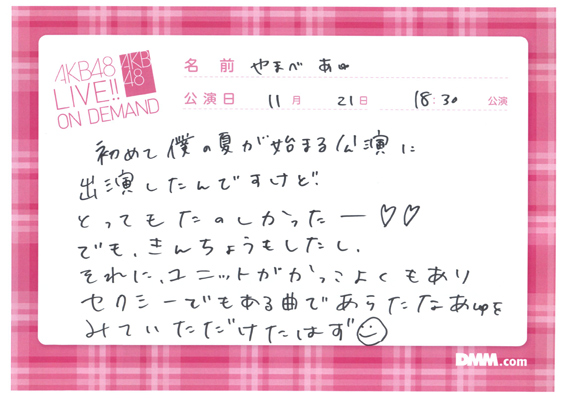 AKB48
LIVE!!
ON DEMAND
AKB
48
名前 やまべ あゆ
公演日 11月 21日 18:30 公演
初めて僕の夏が始まる公演に
出演したんですけど、
とってもたのしかったー♡♡
でも、きんちょうもしたし、
それに、ユニットがかっこよくもあり
セクシーでもある曲であらたなあゆを
みていただけたはず☺
DMM.com